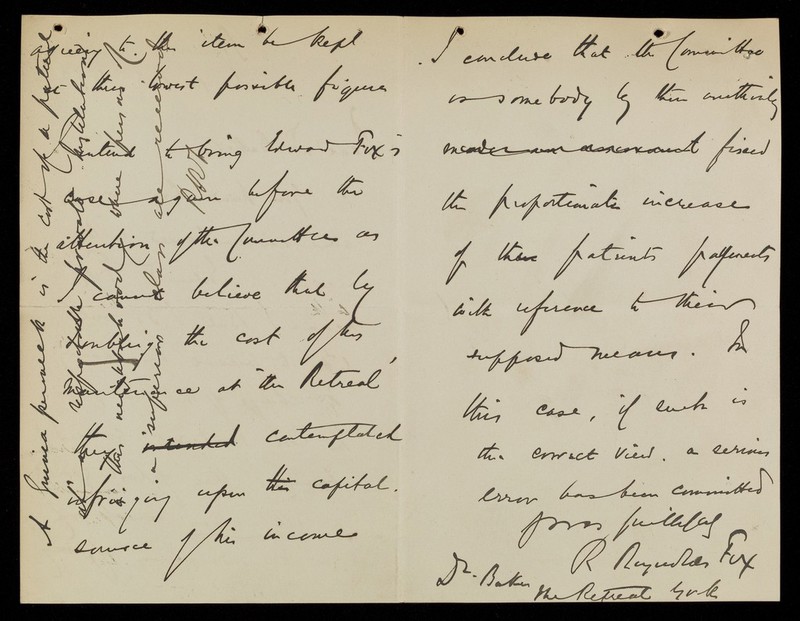 agreeing to the item be kept
at the lowest possible figure
I intend to bring Edward Fox's
case again before the
attention of the Committee as
I cannot believe that by
doubling the cost of his
maintenance at the Retreat
they intended contemplated
infringing upon this capital
source of his income
A Guinea per week is the cost of a patient
at a respectable private Institution
in this neighbourhood where persons of
a superior class are received
RRF
I conclude that the Committee
or somebody by them authorised
fixed
the proportionate increase
of their patients payments
with reference to their
supposed means. In
this case, if such is
the correct view, a serious
error has been committed
Yours faithfully
R Reynolds Fox
Dr. Baker
The Retreat York